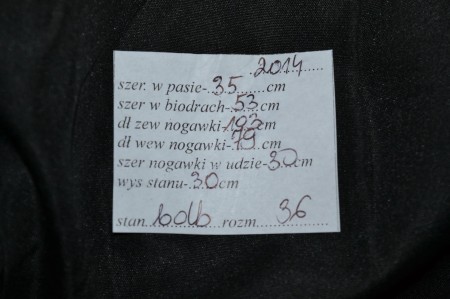 2014
szer. w pasie- 35 cm
szer w biodrach- 53 cm
dł zew nogawki- 103 cm
dł wew nogawki- 79 cm
szer nogawki w udzie- 30 cm
wys stanu- 30 cm
stan bdb rozm. 36